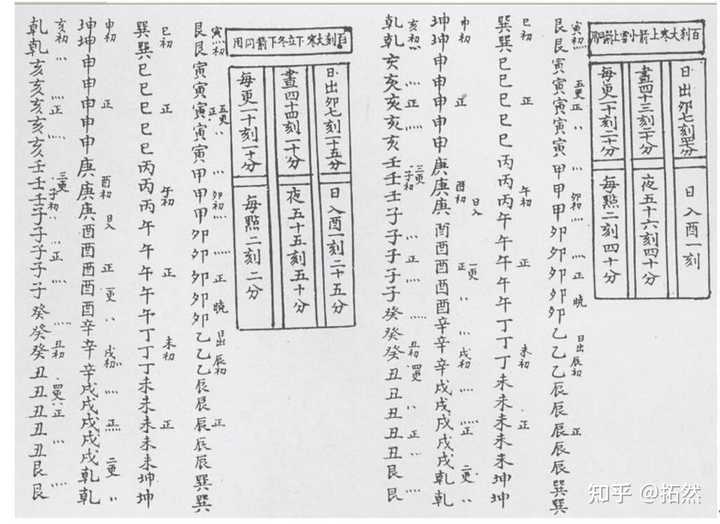 百刻大寒上箭小雪上箭同用
日出卯七刻
日入酉一刻
晝四十三刻二十分
夜五十六刻四十分
每更二十刻二十分
每點二刻四十分
寅初 五更 正 卯初 正 曉 日出 辰初 正
艮艮寅寅寅寅寅甲甲甲卯卯卯卯卯乙乙乙辰辰辰辰辰巽巽
巳初 正 午初 正 未初 正
巽巽巳巳巳巳巳丙丙丙午午午午午丁丁丁未未未未未坤坤
申初 正 酉初 日入 正 一更 戌初 正 二更
坤坤申申申申申庚庚庚酉酉酉酉酉辛辛辛戌戌戌戌戌乾乾
亥初 正 三更 子初 正 丑初 四更 正
乾乾亥亥亥亥亥壬壬壬子子子子子癸癸癸丑丑丑丑丑艮艮
百刻大寒下立冬下箭同用
日出卯七刻一十五分
日入酉一刻二十五分
晝四十四刻一十分
夜五十五刻五十分
每更一十刻一十分
每點二刻二分
寅初 五更 正 卯初 正 曉 日出 辰初 正
艮艮寅寅寅寅寅甲甲甲卯卯卯卯卯乙乙乙辰辰辰辰辰巽巽
巳初 正 午初 正 未初 正
巽巽巳巳巳巳巳丙丙丙午午午午午丁丁丁未未未未未坤坤
申初 正 酉初 日入 正 一更 戌初 正 二更
坤坤申申申申申庚庚庚酉酉酉酉酉辛辛辛戌戌戌戌戌乾乾
亥初 正 三更 子初 正 丑初 四更 正
乾乾亥亥亥亥亥壬壬壬子子子子子癸癸癸丑丑丑丑丑艮艮
知乎 @拓然